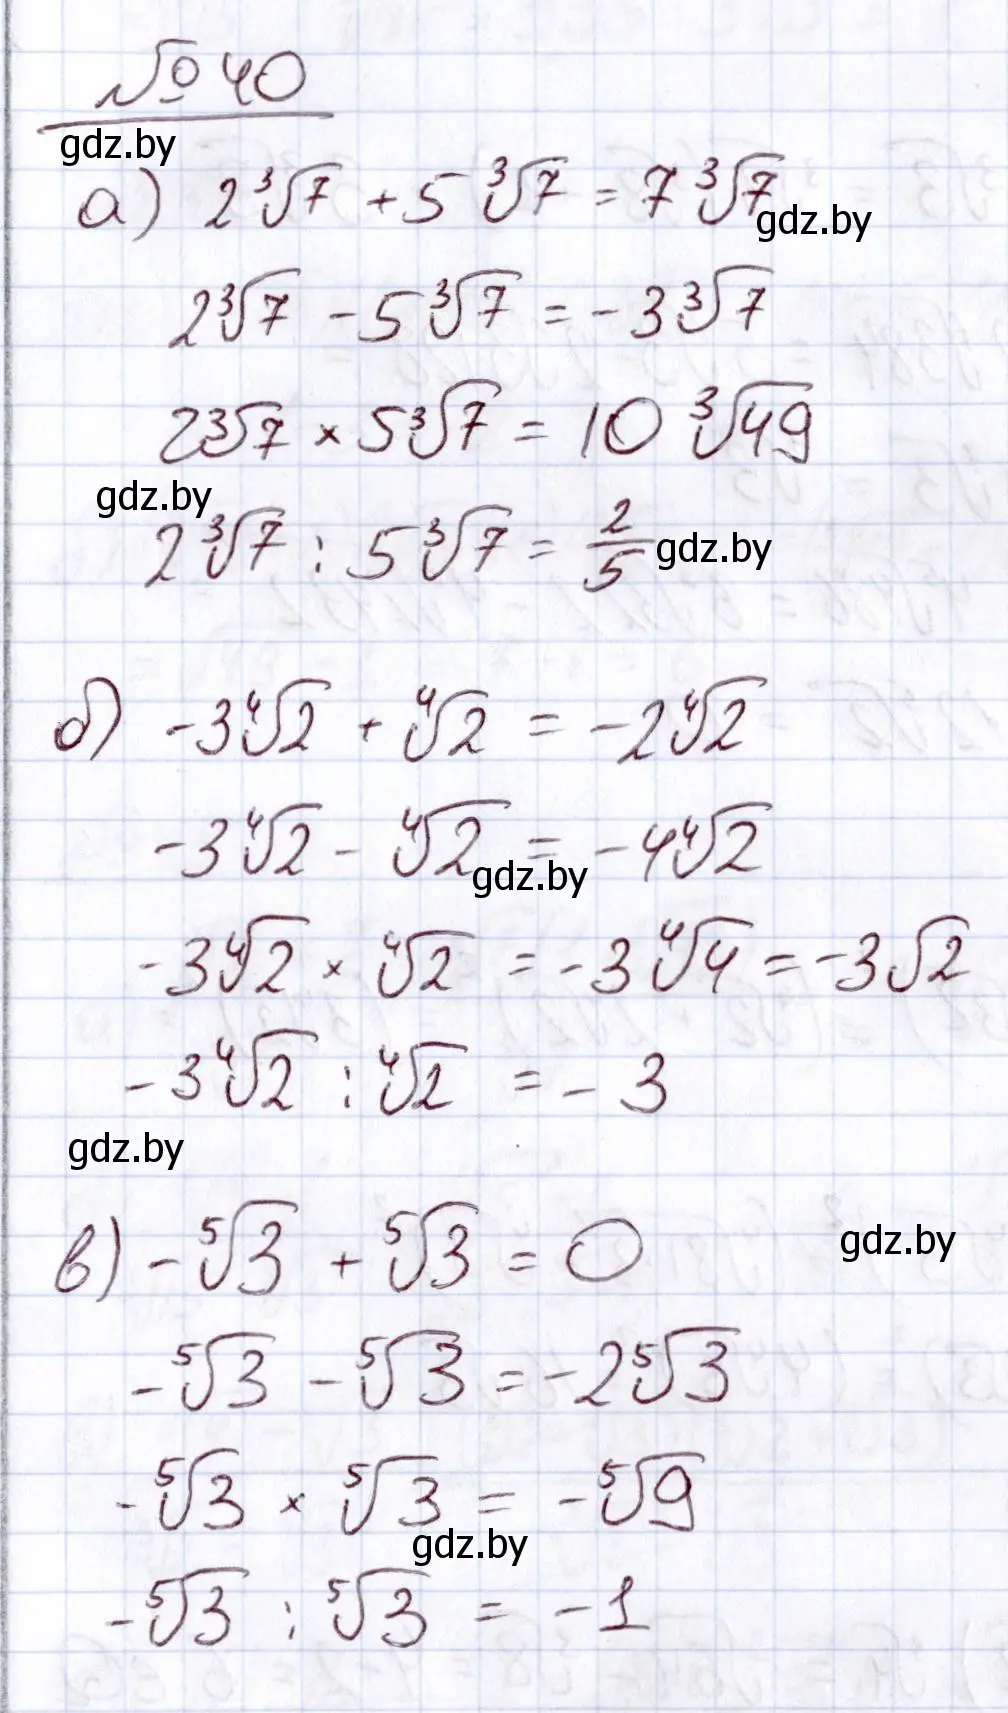 № 40
gdz.by
а) 2∛7 + 5∛7 = 7∛7
gdz.by
2∛7 - 5∛7 = -3∛7
2∛7 × 5∛7 = 10∛49
gdz.by
2∛7 : 5∛7 = 2/5
gdz.by
б) -3∜2 + ∜2 = -2∜2
-3∜2 - ∜2 = -4∜2
gdz.by
-3∜2 × ∜2 = -3∜4 = -3√2
-3∜2 : ∜2 = -3
gdz.by
в) -⁵√3 + ⁵√3 = 0
gdz.by
-⁵√3 - ⁵√3 = -2⁵√3
-⁵√3 × ⁵√3 = -⁵√9
gdz.by
-⁵√3 : ⁵√3 = -1